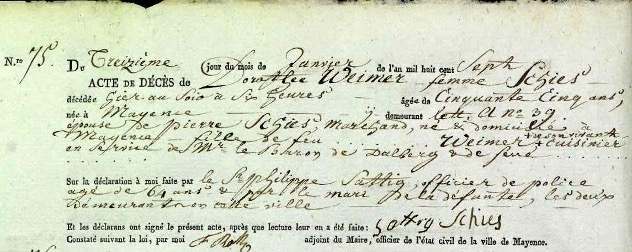 N.ro 75. Du Treizième jour du mois de Janvier de l'an mil huit cent Sept
ACTE DE DÉCÈS de Dorothee Weimer femme Schies
décédée hier au Soir à Six heures âgée de Cinquante Cinq ans,
née à Mayence demeurant lett. A No 39
épouse de pierre Schies Marchand, né & domicilié à
Mayence fille de feu Weimer de son vivant cuisinier
en service de Mr. le Baron de Dalberg & de feue
Sur la déclaration à moi faite par le Sr. Philippe Sattig officier de police
agé de 64 ans & par le mari de la défunte, les deux
demeurants en cette ville
Et les déclarans ont signé le présent acte, après que lecture leur en a été faite: Sattig Schies
Constaté suivant la loi, par moi adjoint du Maire, officier de l'état civil de la ville de Mayence.